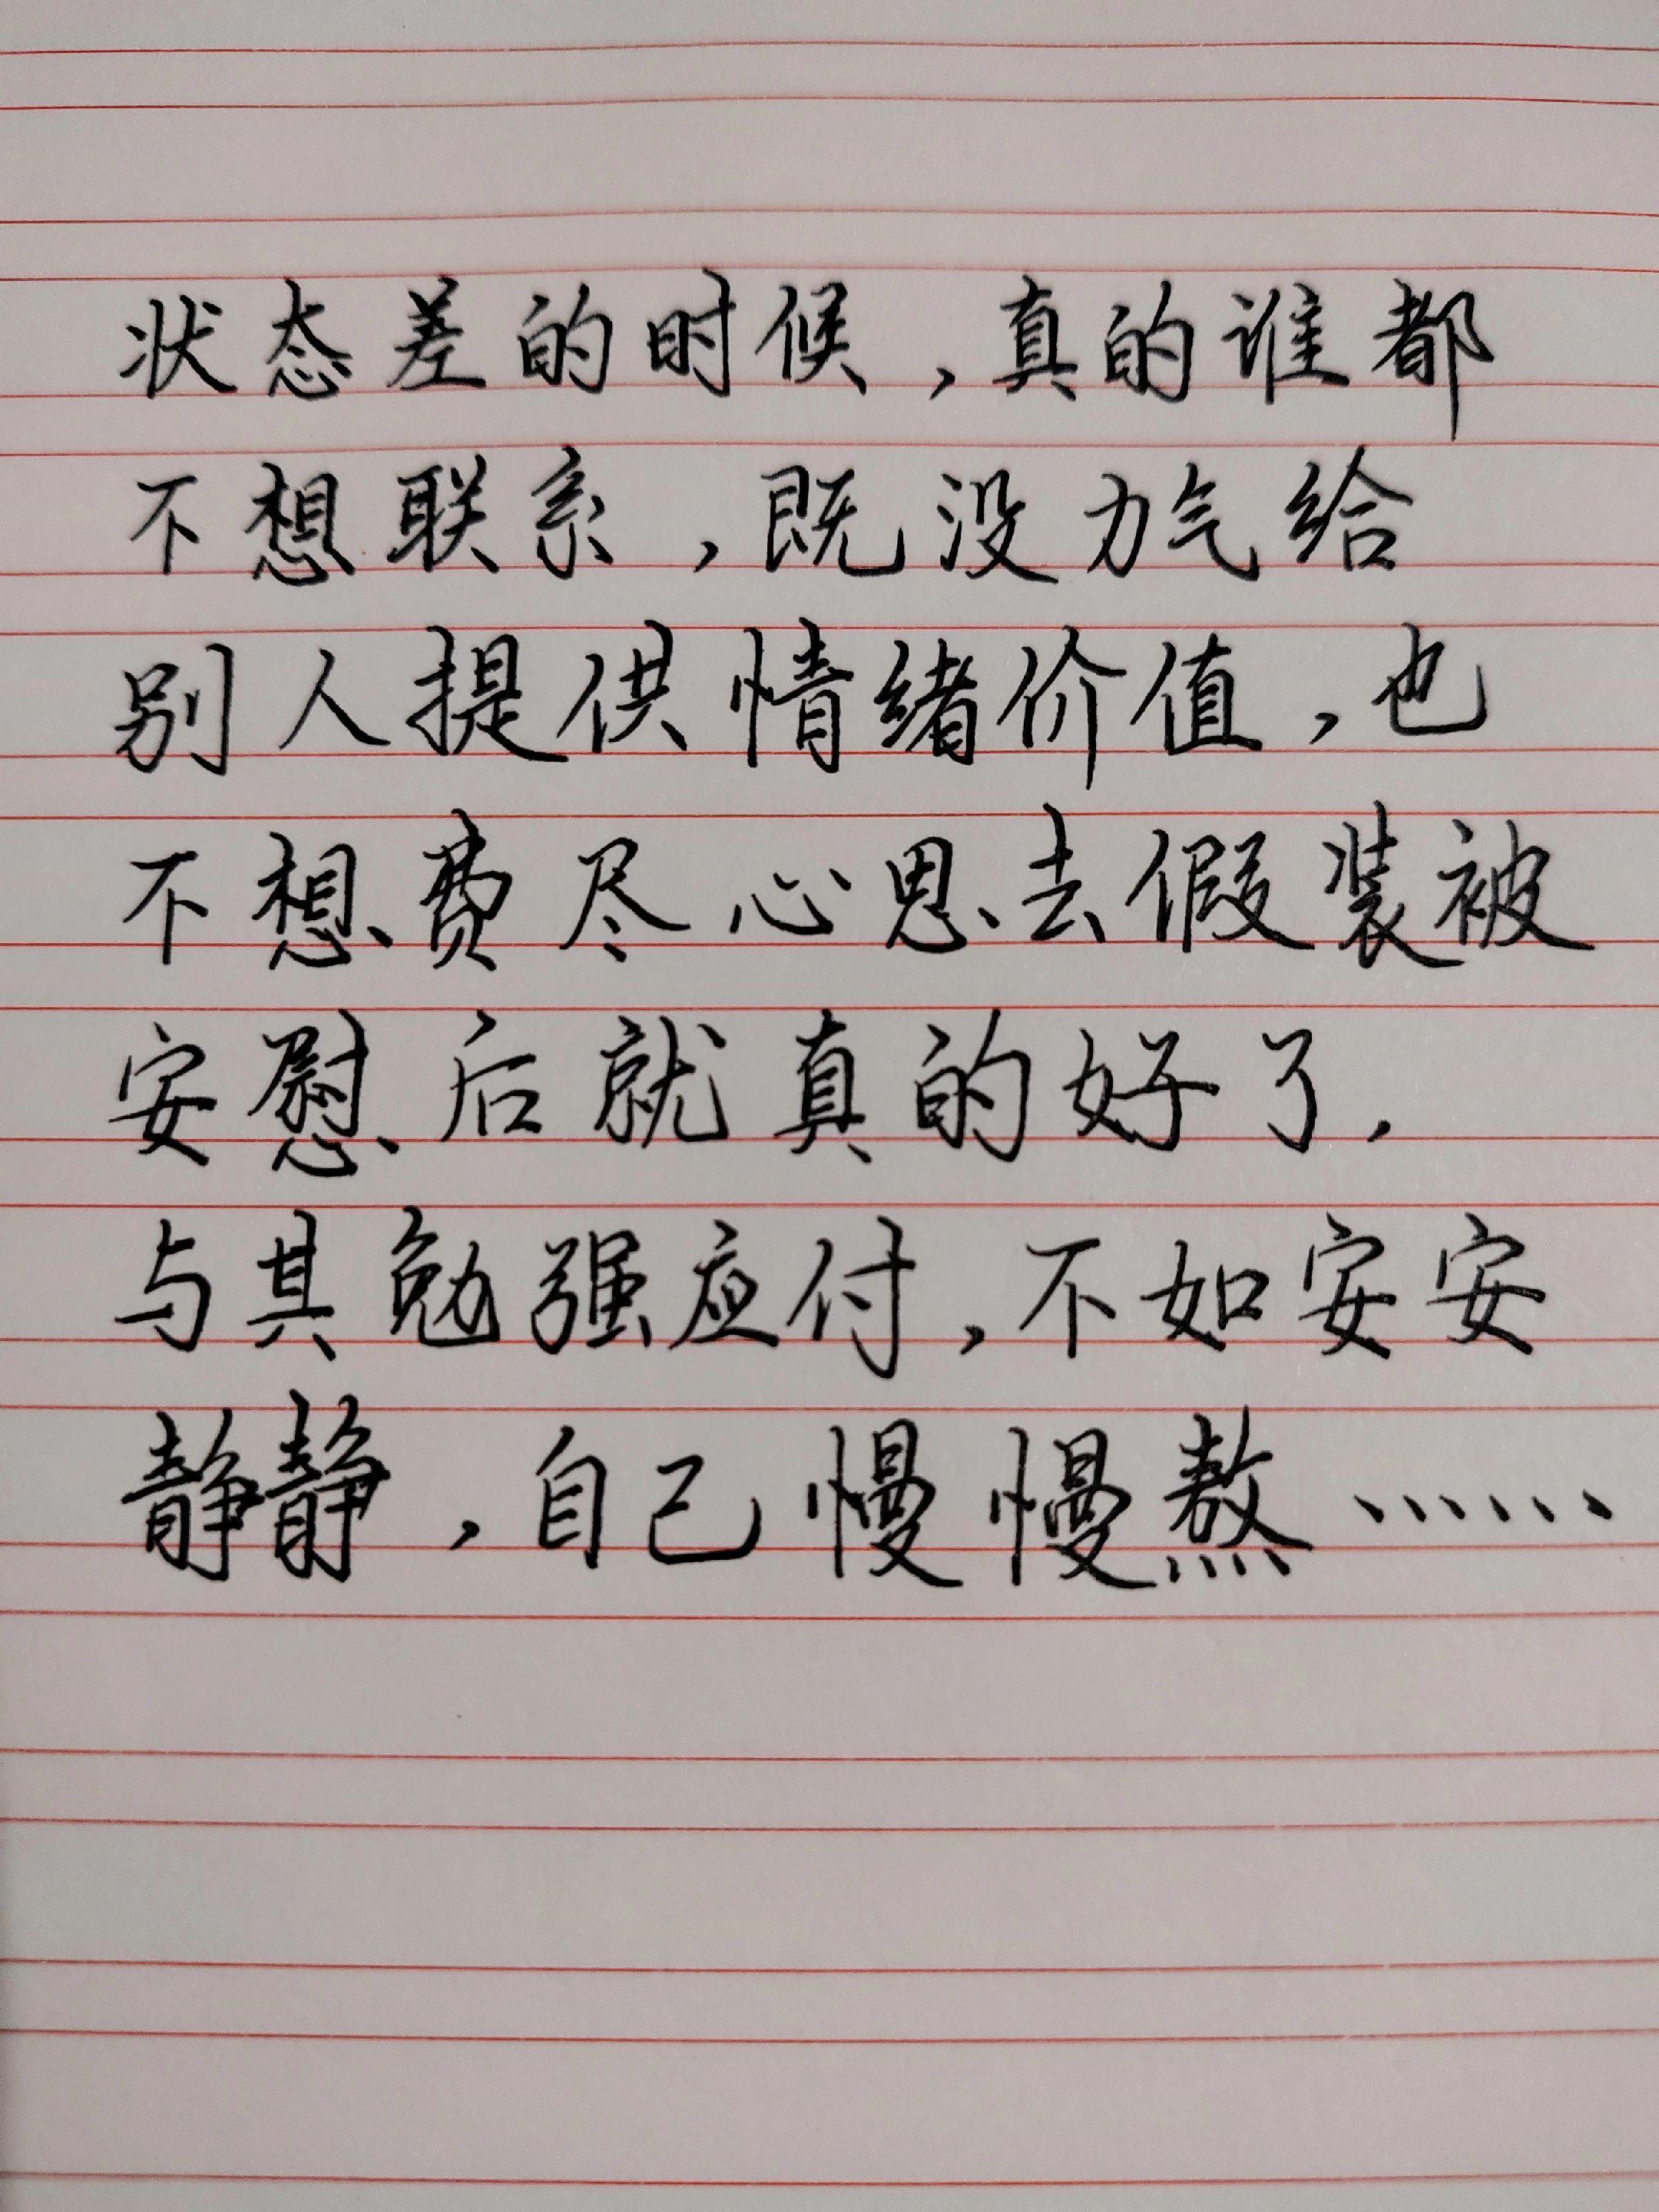 状态差的时候,真的谁都
不想联系,既没力气给
别人提供情绪价值,也
不想费尽心思去假装被
安慰后就真的好了,
与其勉强应付,不如安安
静静,自己慢慢熬……